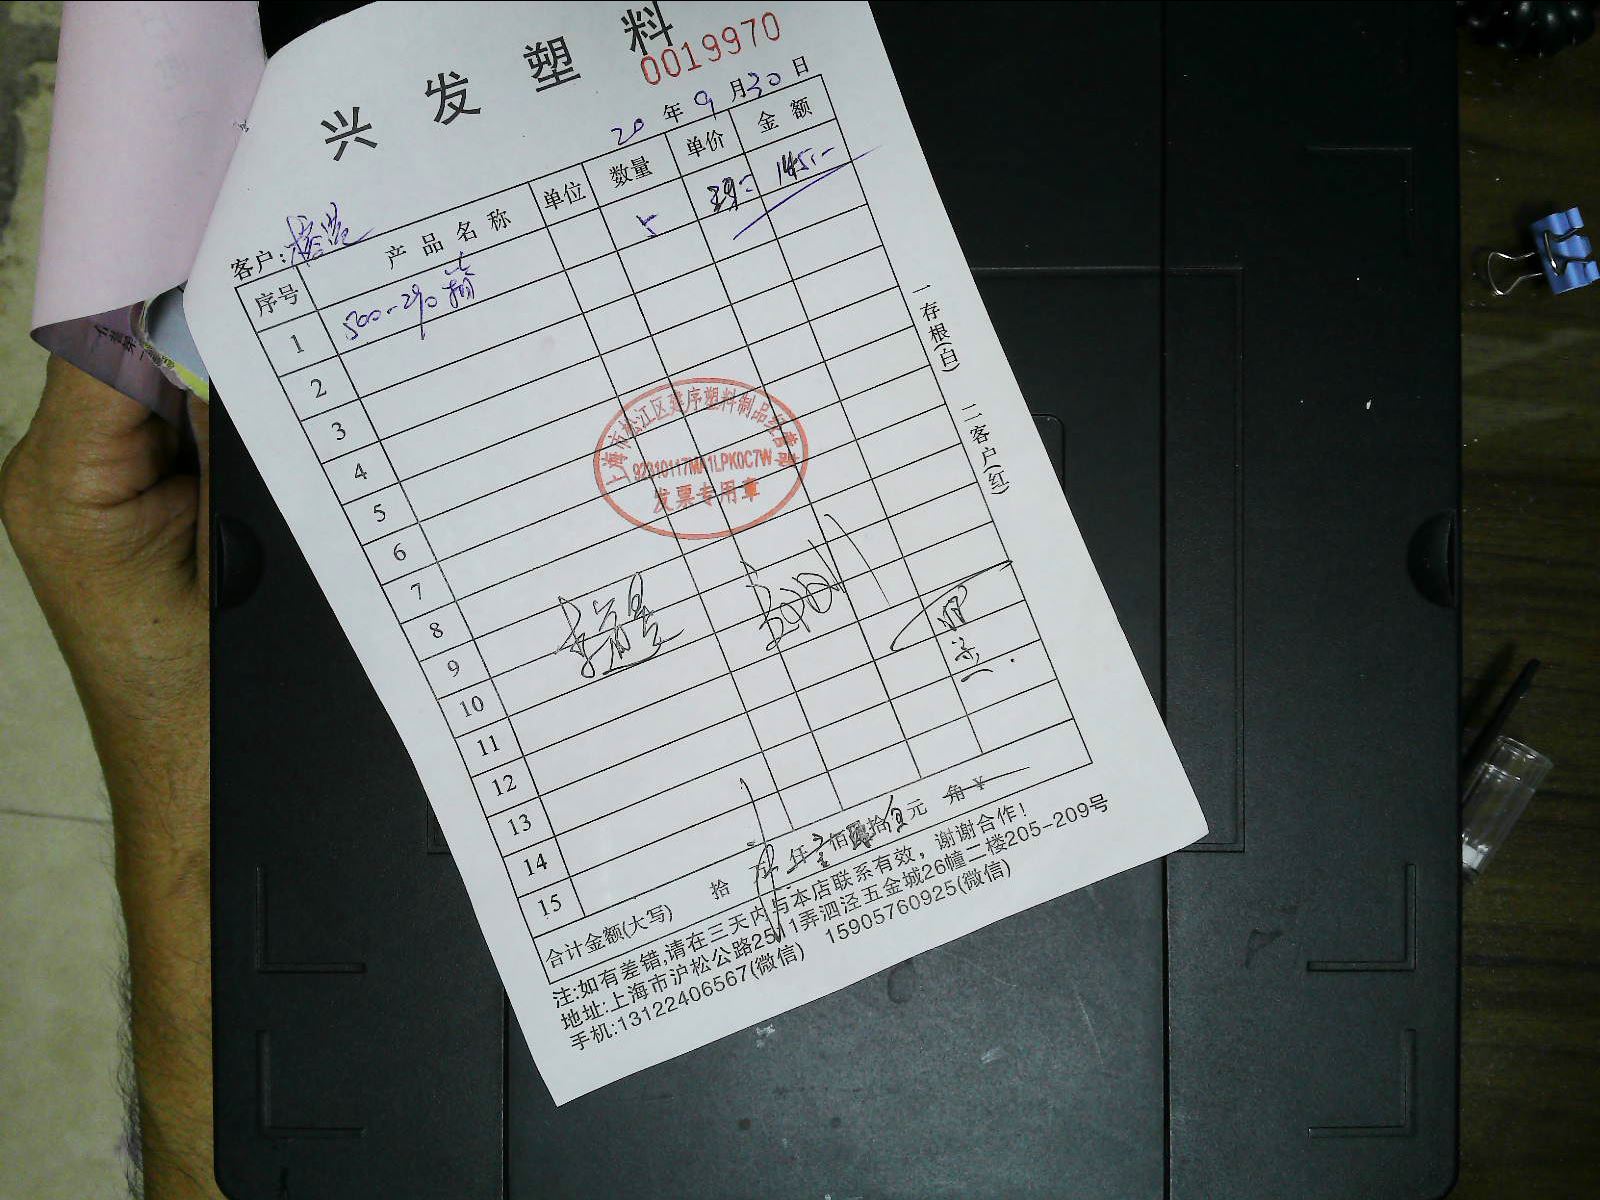 兴发塑料
0019970
20年9月30日
客户:
序号 产品名称 单位 数量 单价 金额
1 500-290 5 145.-
2
3
4
5
6
7
8
9
10
11
12
13
14
15
上海市松江区延序塑料制品经营部
92310117MA1LPK0C7W
发票专用章
一存根(白) 二客户(红)
合计金额(大写) 拾 仟 佰 拾 元 角 ¥
注:如有差错,请在三天内与本店联系有效，谢谢合作!
地址:上海市沪松公路2511弄泗泾五金城26幢二楼205-209号
手机:13122406567(微信) 15905760925(微信)